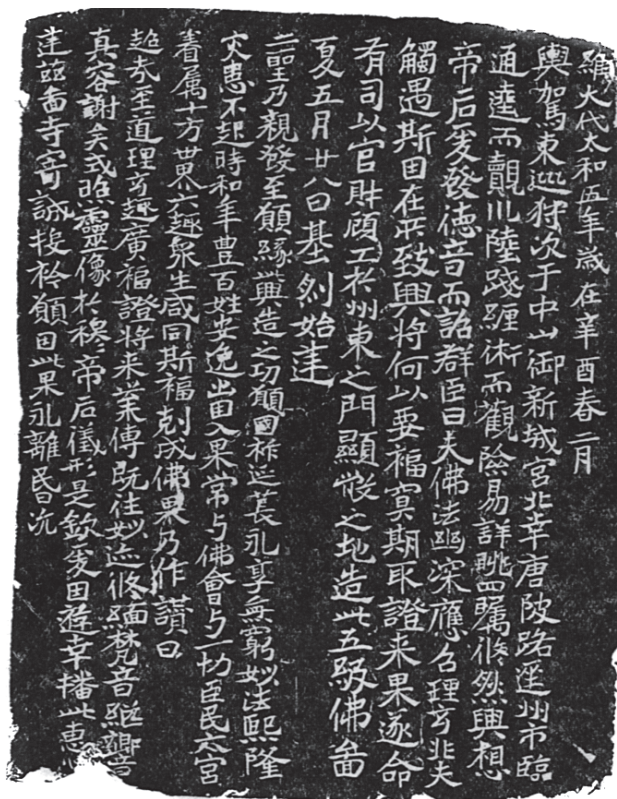 維大代太和五年歲在辛酉春二月
輿駕東巡狩次于中山御新城宮北幸唐陂路逕州市臨
通逵而覿川陸踐經術而觀險易詳眺四矚悠然興想
帝后爰發德音而詔群臣曰夫佛法幽深應召理玄非夫
觸遇斯因在茲致興將何以要福冥期取證来果遂命
有司以官財顧工於州東之門顯敞之地造此五級佛啚
夏五月廿八日基剏始建
二聖乃親發至願緣此興造之功願國祚延萇永享無窮妙法熙隆
灾患不起時和年豊百姓安逸出因入果常与佛會与一切臣民六宮
眷属十方世界六趣衆生咸同斯福剋成佛果乃作讚曰
超哉至道理玄趣廣福證将来業傳既往妙迹悠緬梵音継響
真容謝矣或瞧靈像於穆帝后儀形是欽爰因遊幸播此惠
建茲啚寺寄誠投於願因此果永離昏沉